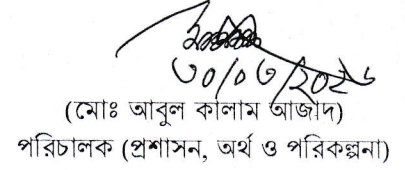 ৩০/০৩/২০২৬
(মোঃ আবুল কালাম আজাদ)
পরিচালক (প্রশাসন, অর্থ ও পরিকল্পনা)